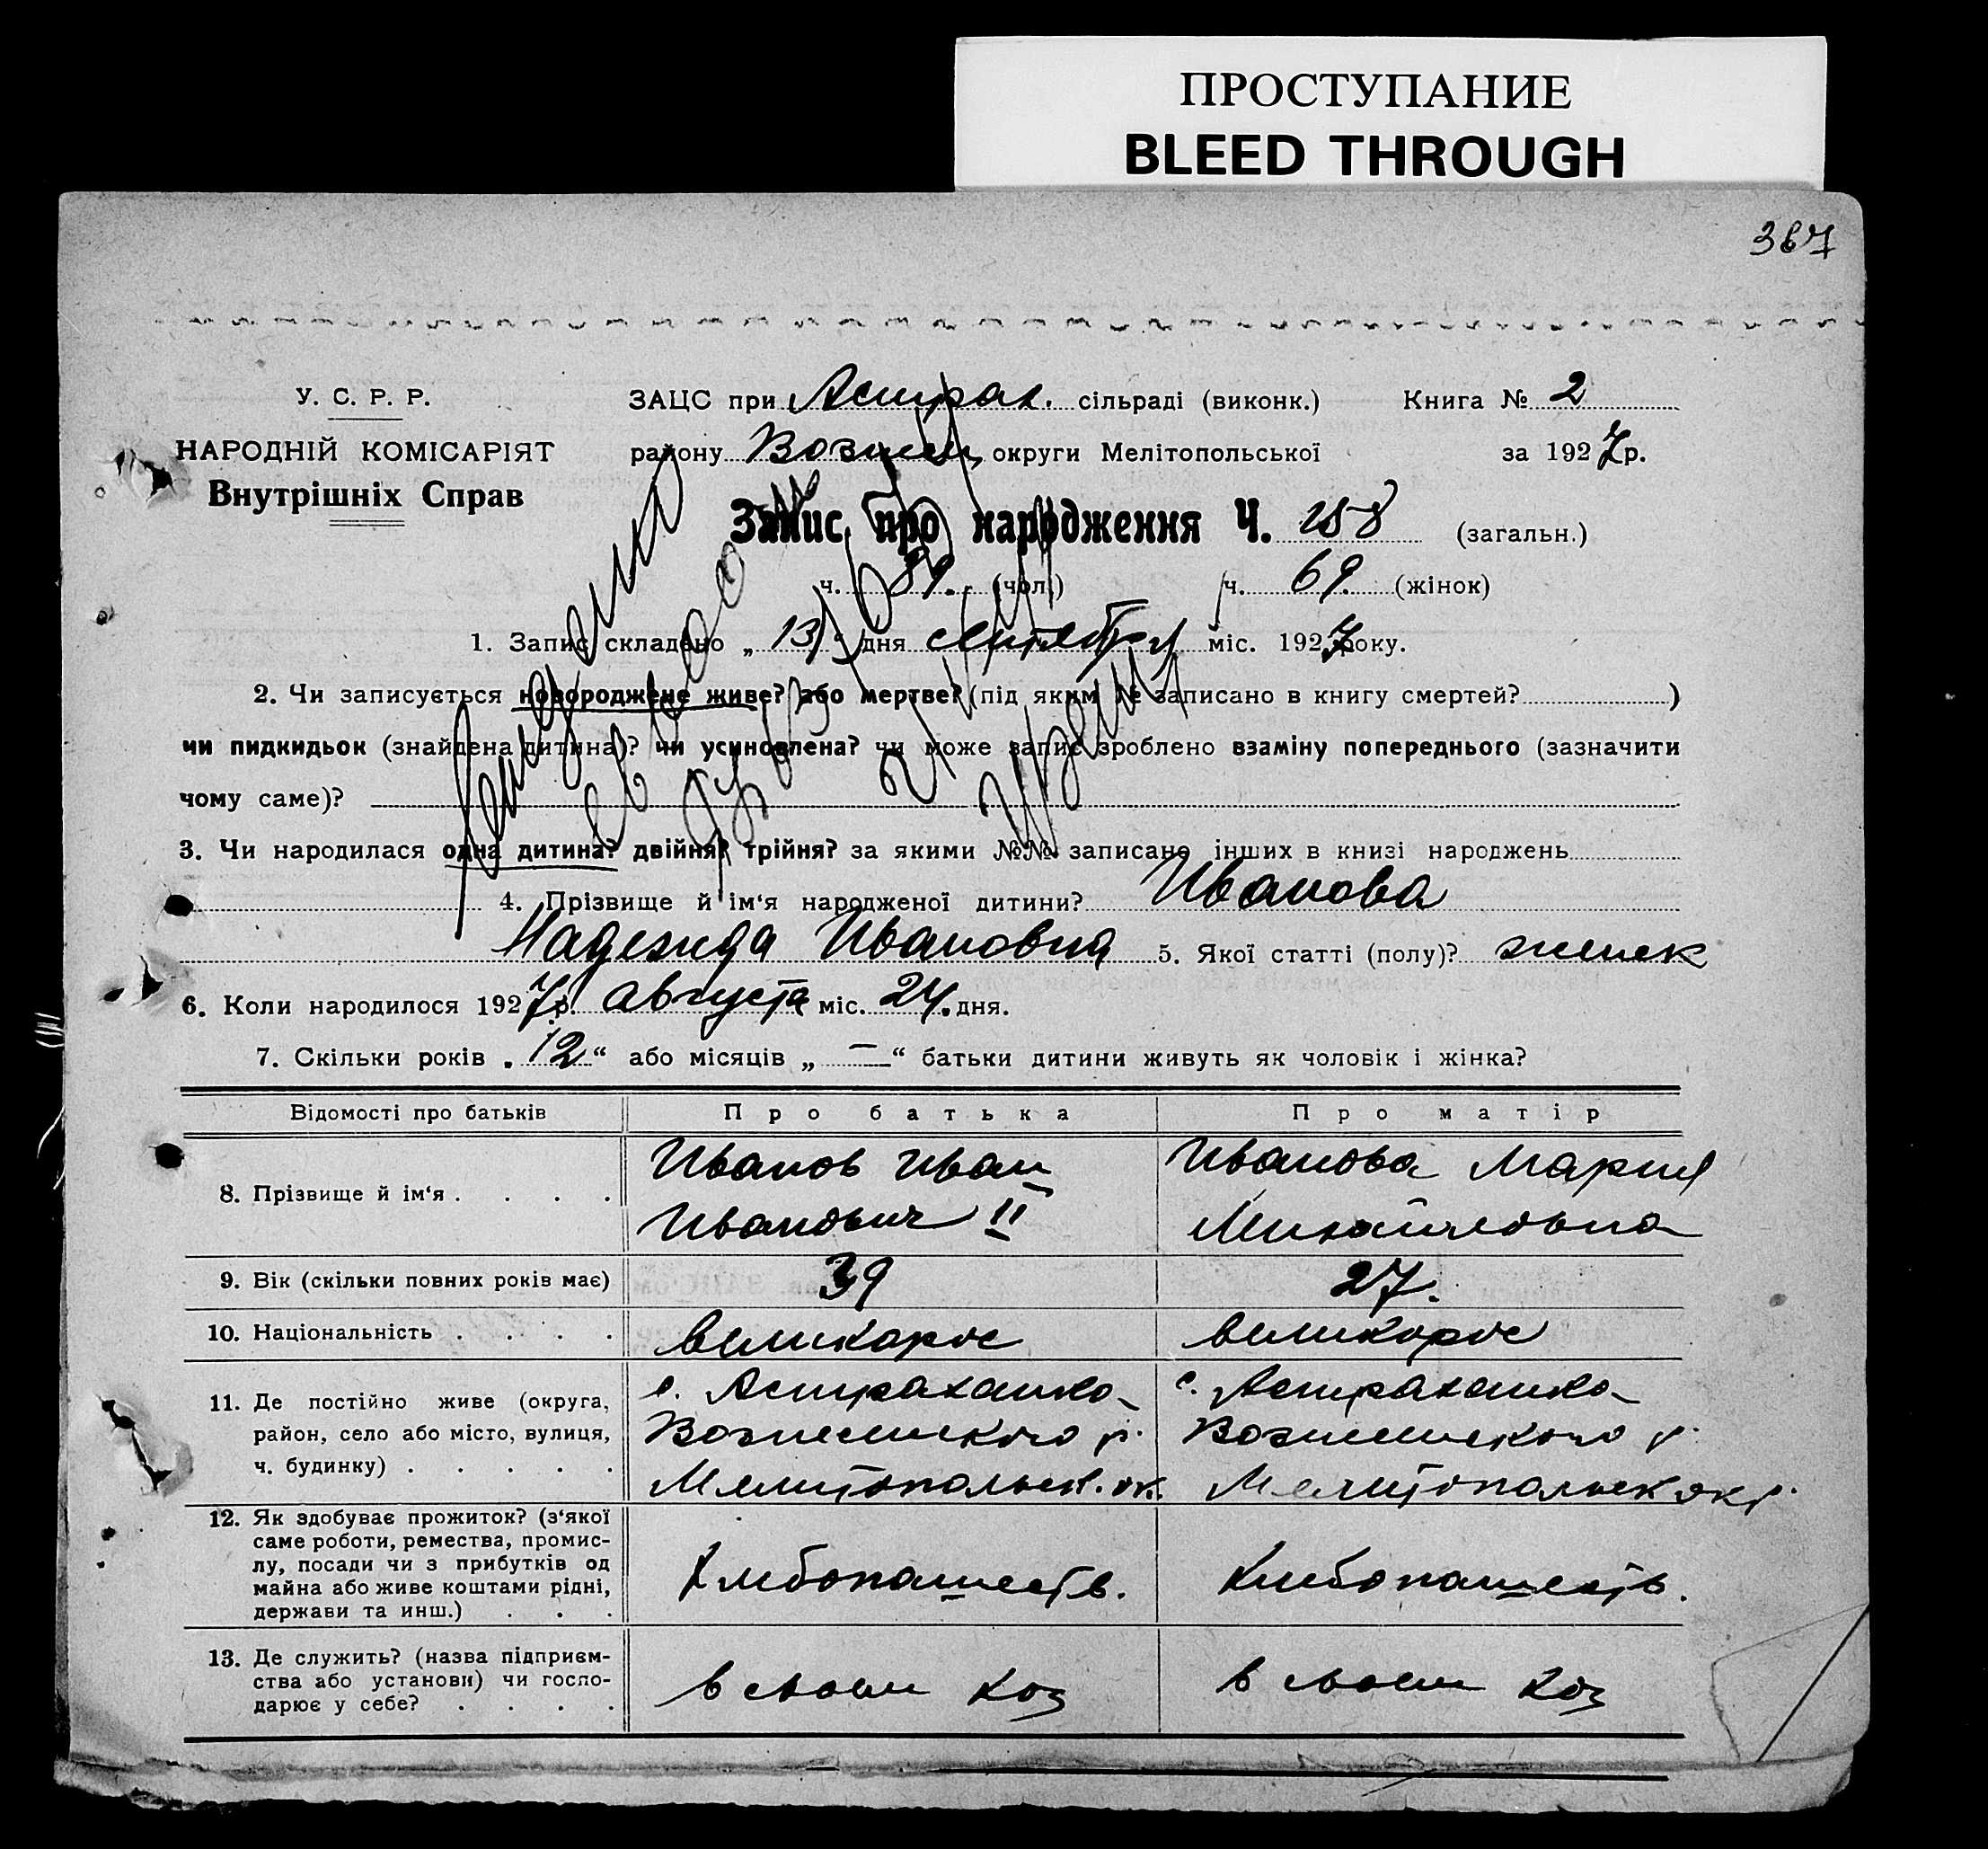 ПРОСТУПАНИЕ
BLEED THROUGH
367
У. С. Р. Р.
НАРОДНІЙ КОМІСАРІЯТ
Внутрішніх Справ
ЗАЦС при Астрах. сільраді (виконк.) Книга № 2
району Вознес, округи Мелітопольської за 1927р.
Запис про народження Ч. 158 (загальн.)
ч. 89. (чол.) ч. 69. (жінок)
1. Запис складено „13" дня сентебря міс. 1927 року.
2. Чи записується новороджене живе? або мертве? (під яким № записано в книгу смертей? )
чи пидкидьок (знайдена дитина)? чи усиновлена? чи може запис зроблено взаміну попереднього (зазначити
чому саме)?
3. Чи народилася одна дитина? двійня? трійня? за якими №№ записано інших в книзі народжень
4. Прізвище й ім'я народженої дитини? Иванова
Надежда Ивановна 5. Якої статті (полу)? женск
6. Коли народилося 1927 р. августа міс. 24. дня.
7. Скільки років „12" або місяців „—" батьки дитини живуть як чоловік і жінка?
Відомості про батьків Про батька Про матір
8. Прізвище й ім'я . . . . Иванов Иван Иванович II Иванова Мария Михайловна
9. Вік (скільки повних років має) 39 27.
10. Національність . . . . великорос великорос
11. Де постійно живе (округа,
район, село або місто, вулиця,
ч. будинку) . . . . .
с. Астраханка
Вознесенского р.
Мелитопольск. ок.
с. Астраханка
Вознесенского р.
Мелитопольск окр.
12. Як здобуває прожиток? (з'якої
саме роботи, ремества, промис-
лу, посади чи з прибутків од
майна або живе коштами рідні,
держави та инш.) . . .
Хлебопашеств.
Хлебопашеств.
13. Де служить? (назва підприєм-
ства або установи) чи госпо-
дарює у себе? . . . .
в своем хоз
в своем хоз